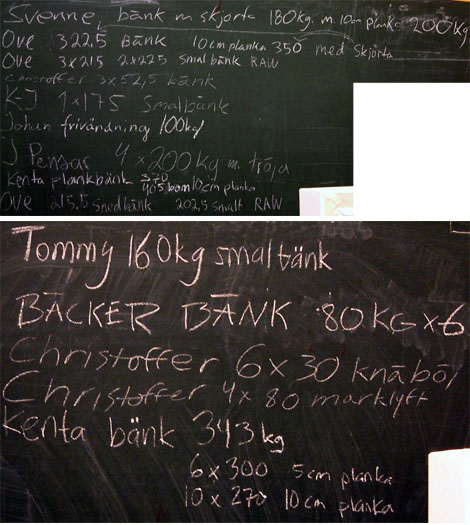 Svenne, bänk m. skjorta 180kg. m. 10cm planka 200kg
Ove 322,5 BÄNK 10cm planka 350 med skjorta
Ove 3x215 2x225 smal bänk RAW
Christoffer 3x52,5 bänk
K-J 1x175 Smalbänk
Johan frivändning 100kg
J Pensar 4x200kg m. tröja
Kenta plankbänk 370
405 bom 10cm planka
Ove 215,5 snedbänk 202,5 smalt RAW
Tommy 160kg smalbänk
BÄCKER BÄNK 80KG x6
Christoffer 6x30 knäböj
Christoffer 4x80 marklyft
Kenta bänk 343kg
6x300 5cm planka
10x270 10cm planka